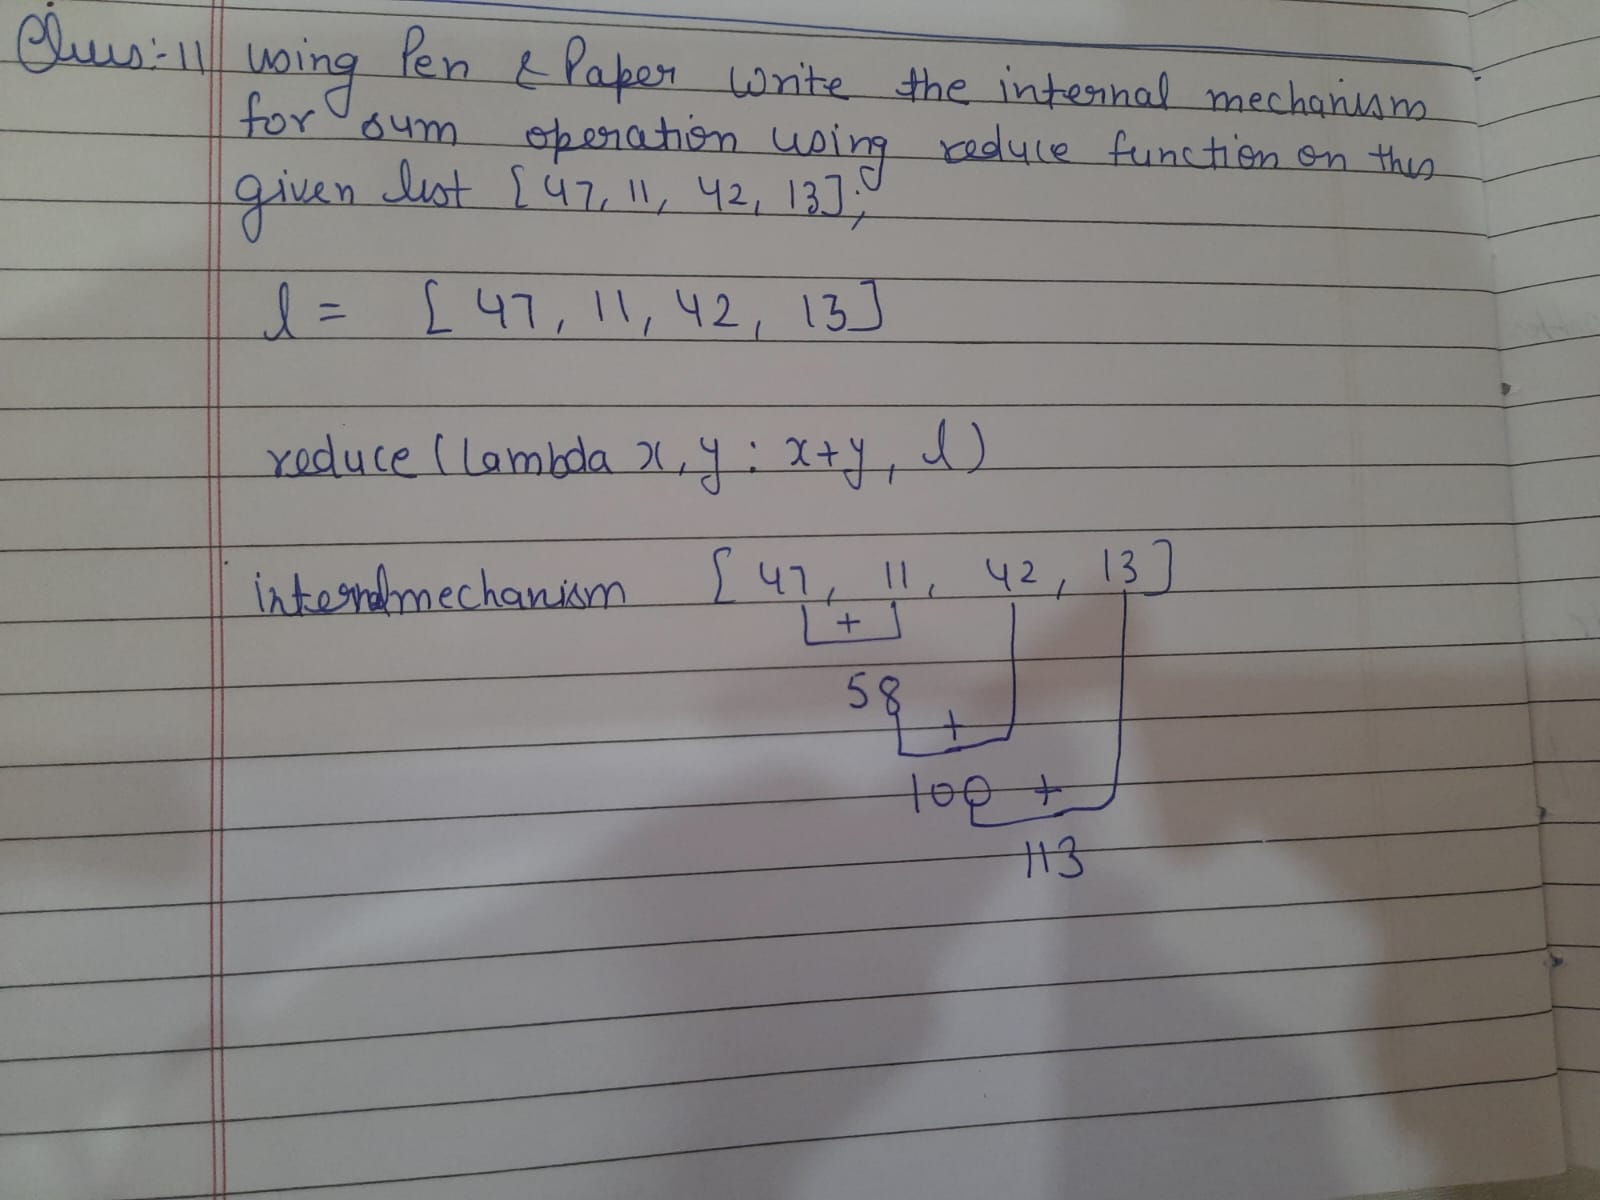 Ques:-11 using Pen & Paper write the internal mechanism
for sum operation using reduce function on this
given list [47, 11, 42, 13];
l = [47, 11, 42, 13]
reduce (lambda x, y : x+y, l)
internal mechanism [47, 11, 42, 13]
+
58
+
100 +
113